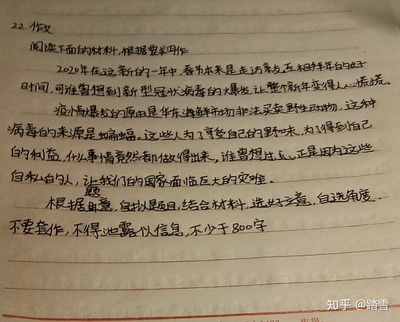 22.作文
阅读下面的材料,根据要求写作
2020年在这新的一年中,春节本来是走访亲友互相拜年的好
时间,可谁曾想到新型冠状病毒的爆发,让整个新年变得人心慌慌。
疫情爆发的原由是华东海鲜市场非法买卖野生动物,这种
病毒的来源是蝙蝠。这些人为了享受自己的野味,为了得到自己
的利益,什么事情竟然都做得出来,谁曾想过,正是因为这些
自私的人,让我们的国家面临巨大的灾难。
根据题意,自拟题目,结合材料,选好立意,自选角度,
不要套作,不得泄露私信息,不少于800字
知乎 @踏雪